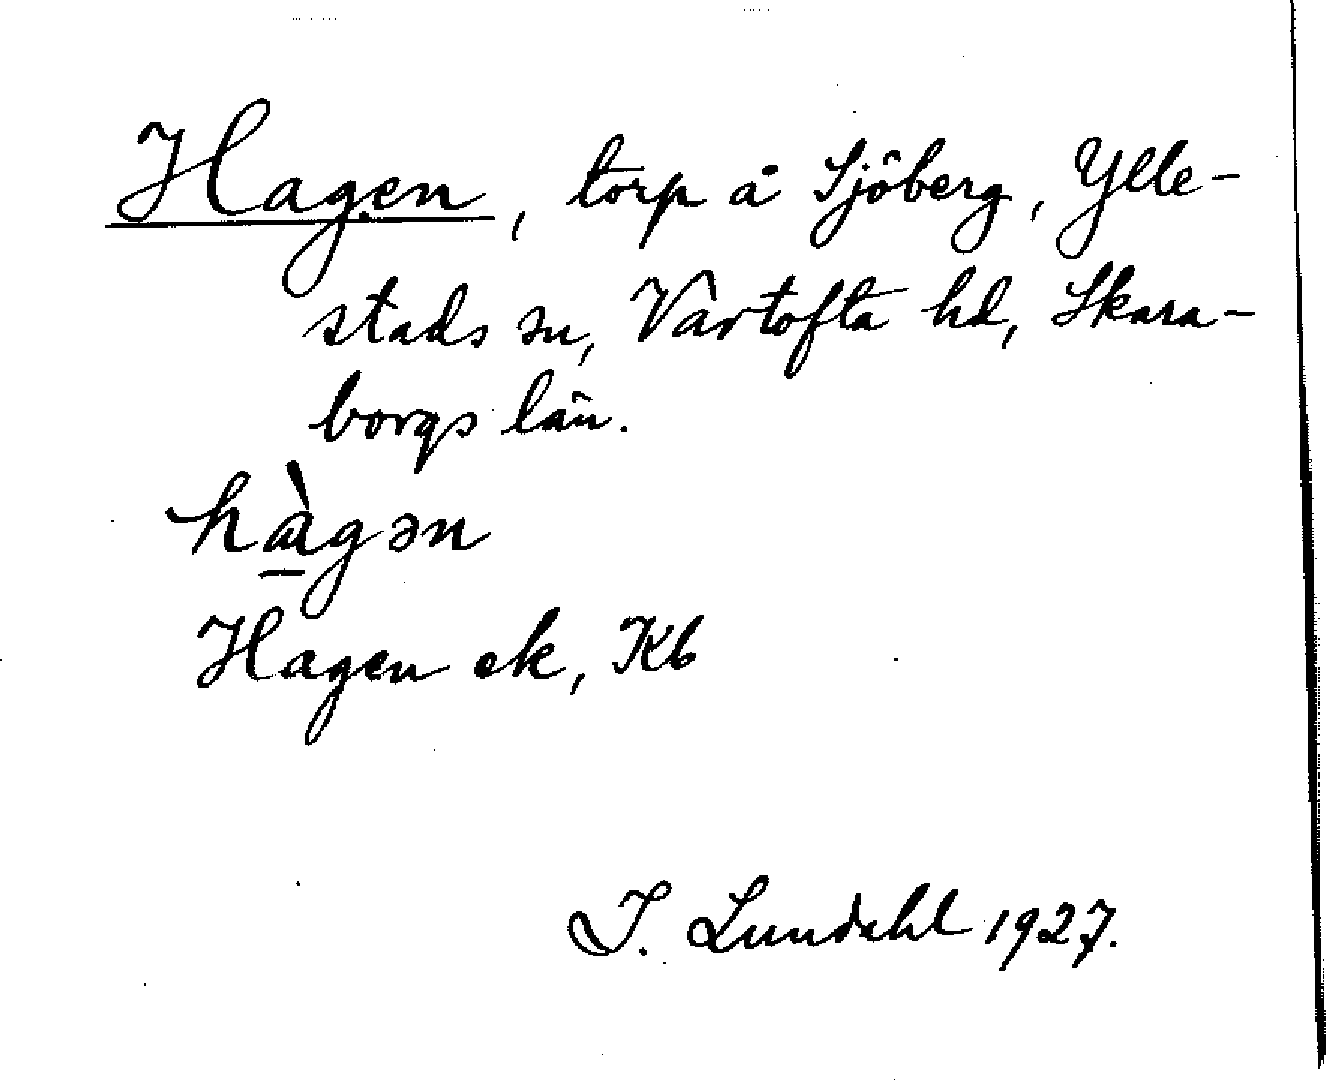 Hagen, torp å Sjöberg, Ylle-
stads sn, Vartofta hd, Skara-
borgs län.
hà̱gən
Hagen ek, Kb
I. Lundahl 1927.